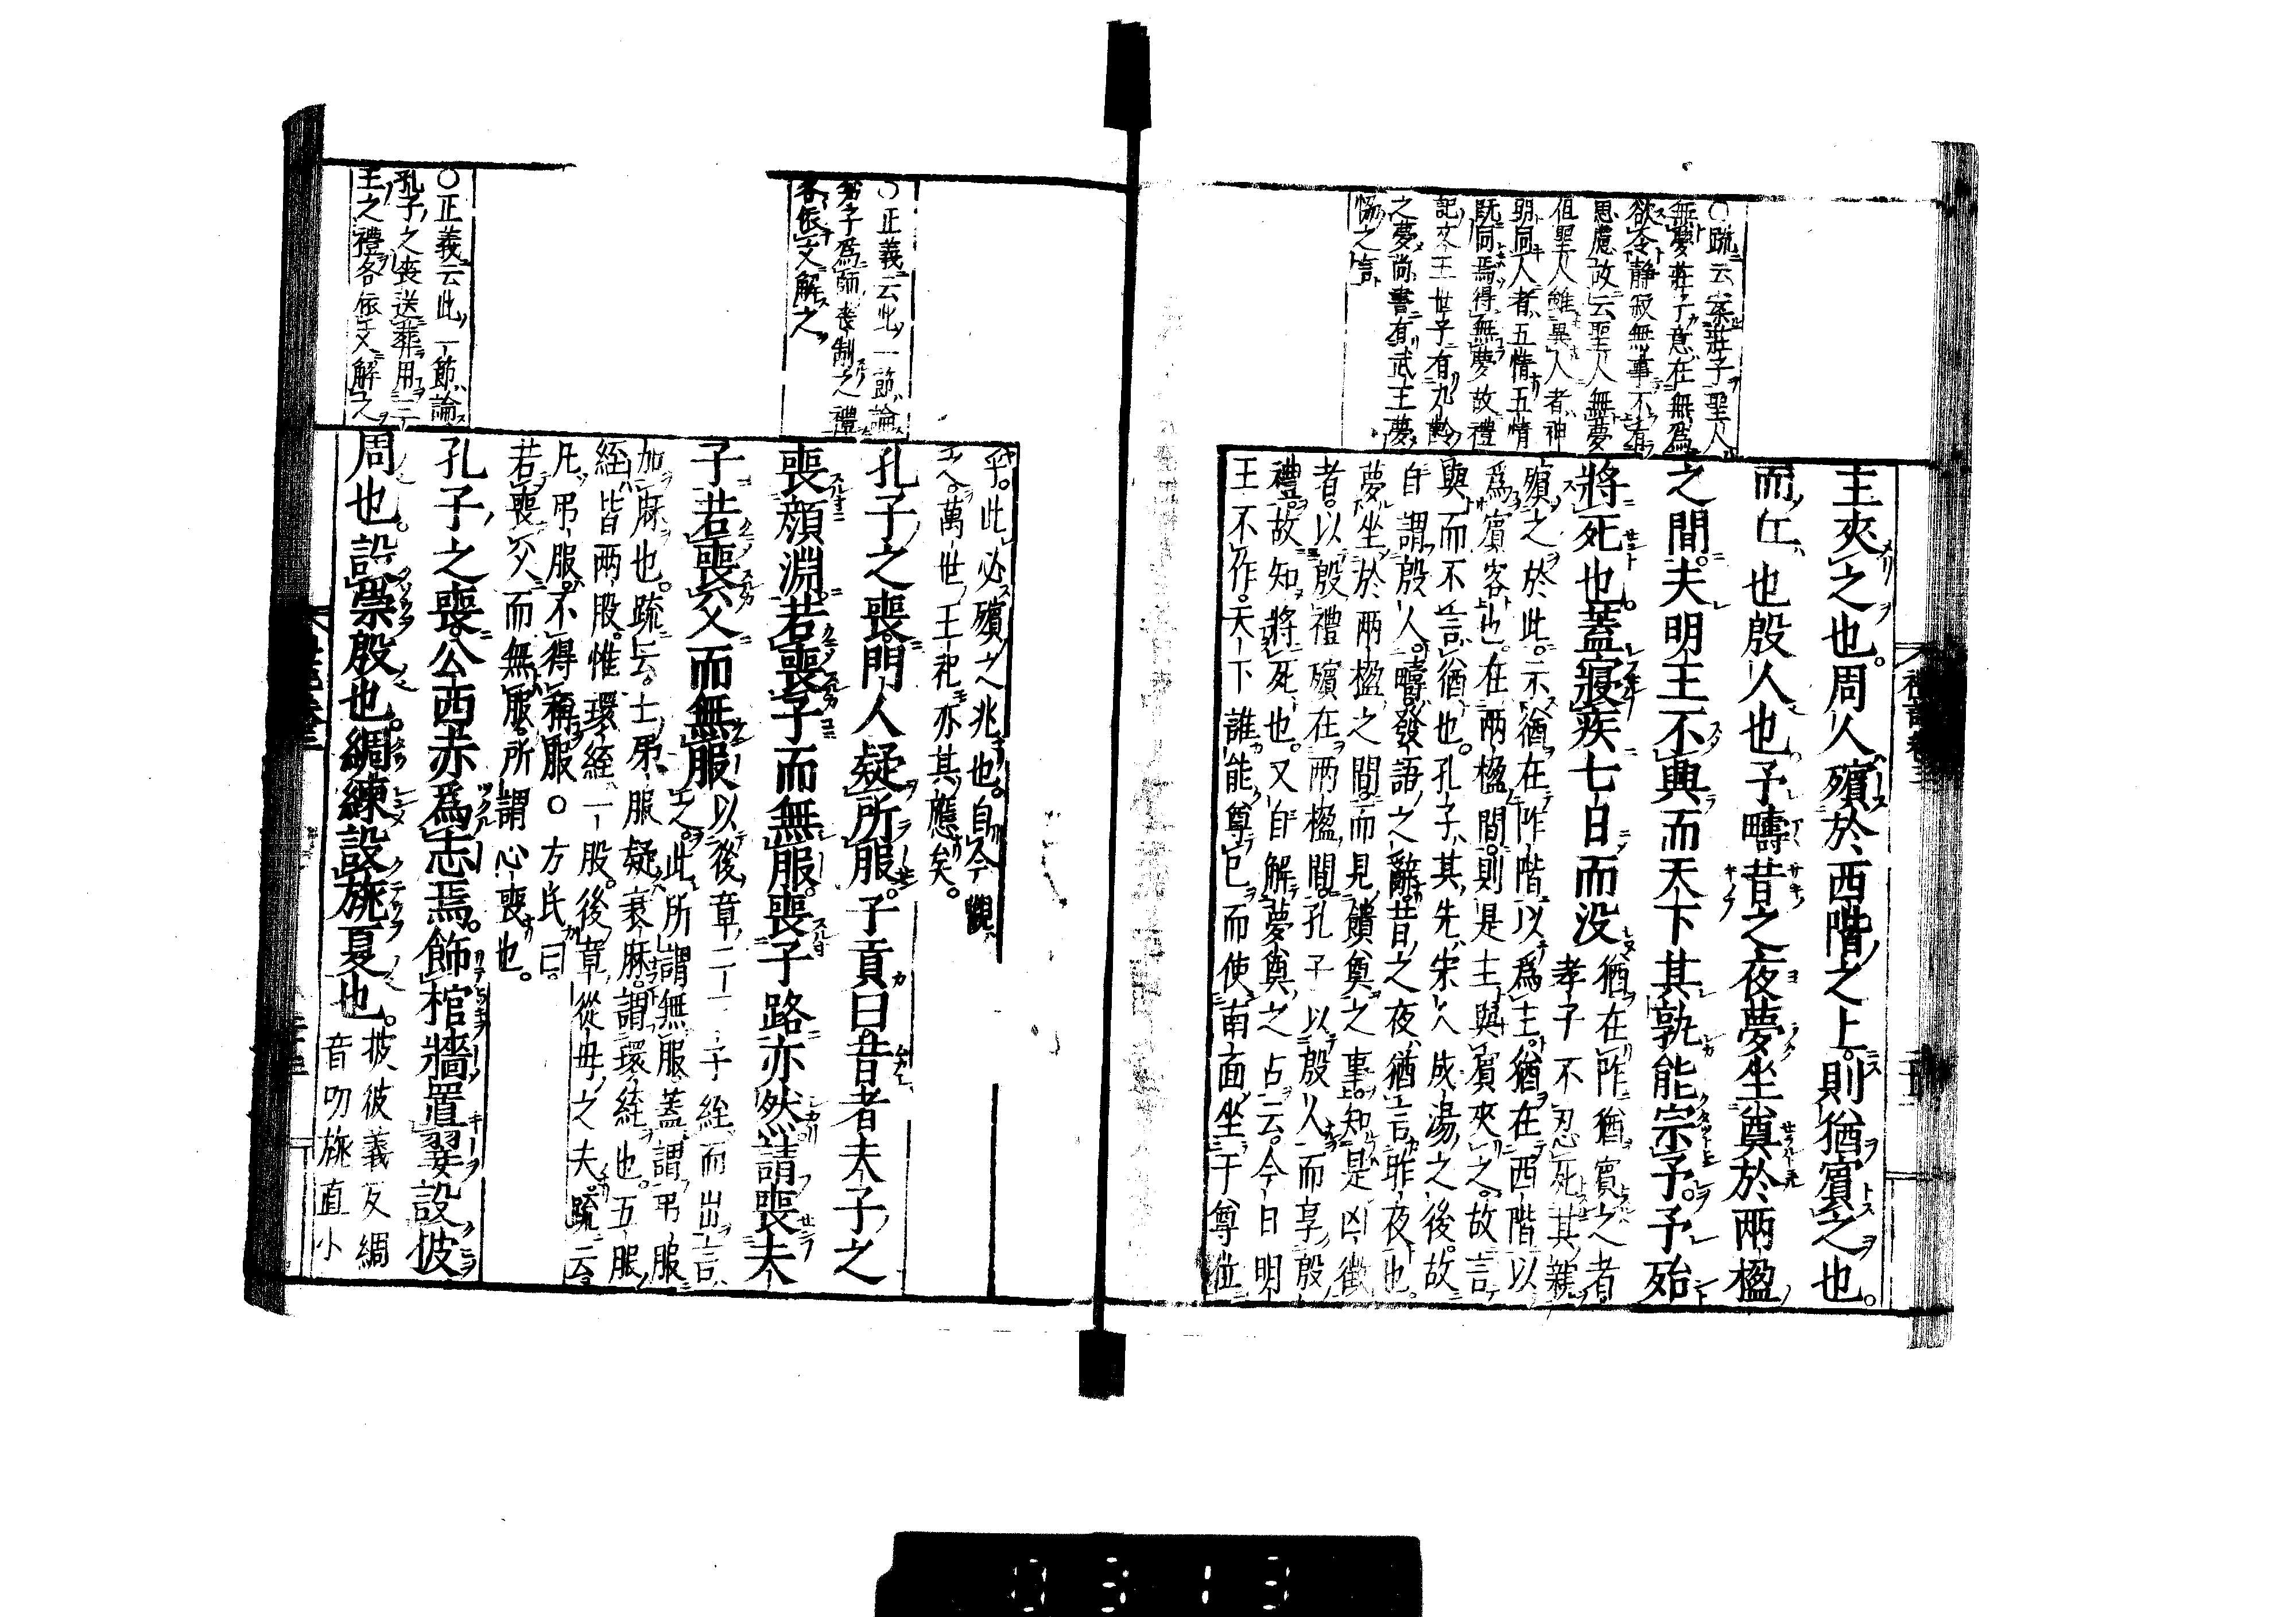 ○疏云案莊子聖人
無夢莊子意在無爲
欲令靜寂無事不有
思慮故云聖人無夢
但聖人雖異人者神
明同人者五情五情
既同焉得無夢故禮
記文王世子有九齡
之夢尚書有武王夢
協之言
主夾之也。周人殯於西階之上。則猶賓之也。
而丘也殷人也予疇昔之夜夢坐奠於兩楹
之間。夫明王不興而天下其孰能宗予。予殆
將死也。蓋寢疾七日而没
猶在阼猶賓之者。
孝子不忍死其親
殯之於此。示猶在阼階以爲主。猶在西階以
爲賓客也。在兩楹間。則是主與賓夾之。故言
與而不言猶也。孔子其先宋人成湯之後。故
自謂殷人。疇發語之辭。昔之夜猶言昨夜也。
夢坐於兩楹之間。而見饋奠之事。知是凶徵
者。以殷禮殯在兩楹間。孔子以殷人而享殷
禮。故知將死也。又自解夢奠之占云。今日明
王不作。天下誰能尊已而使南面坐于尊位
乎。此必殯之兆也。自今觀
之。萬世王祀亦其應矣。
○正義云此一節論
弟子爲師喪制之禮
各依文解之
孔子之喪。門人疑所服。子貢曰。昔者夫子之
喪顏淵。若喪子而無服。喪子路亦然。請喪夫
子若喪父而無服
以後章二三子絰而出言
之。此所謂無服蓋謂弔服
加麻也。疏云。士弔服疑衰麻。謂環絰也。五服
絰皆兩股。惟環絰一股。後章從母之夫。疏云
凡弔服。不得稱服。○方氏曰。
若喪父而無服。所謂心喪也。
○正義云此一節論
孔子之喪送葬用三
王之禮各依文解之
孔子之喪。公西赤爲志焉。飾棺牆置翣設披
周也。設崇殷也。綢練設旐夏也。
披彼義反綢
音叨旐直小